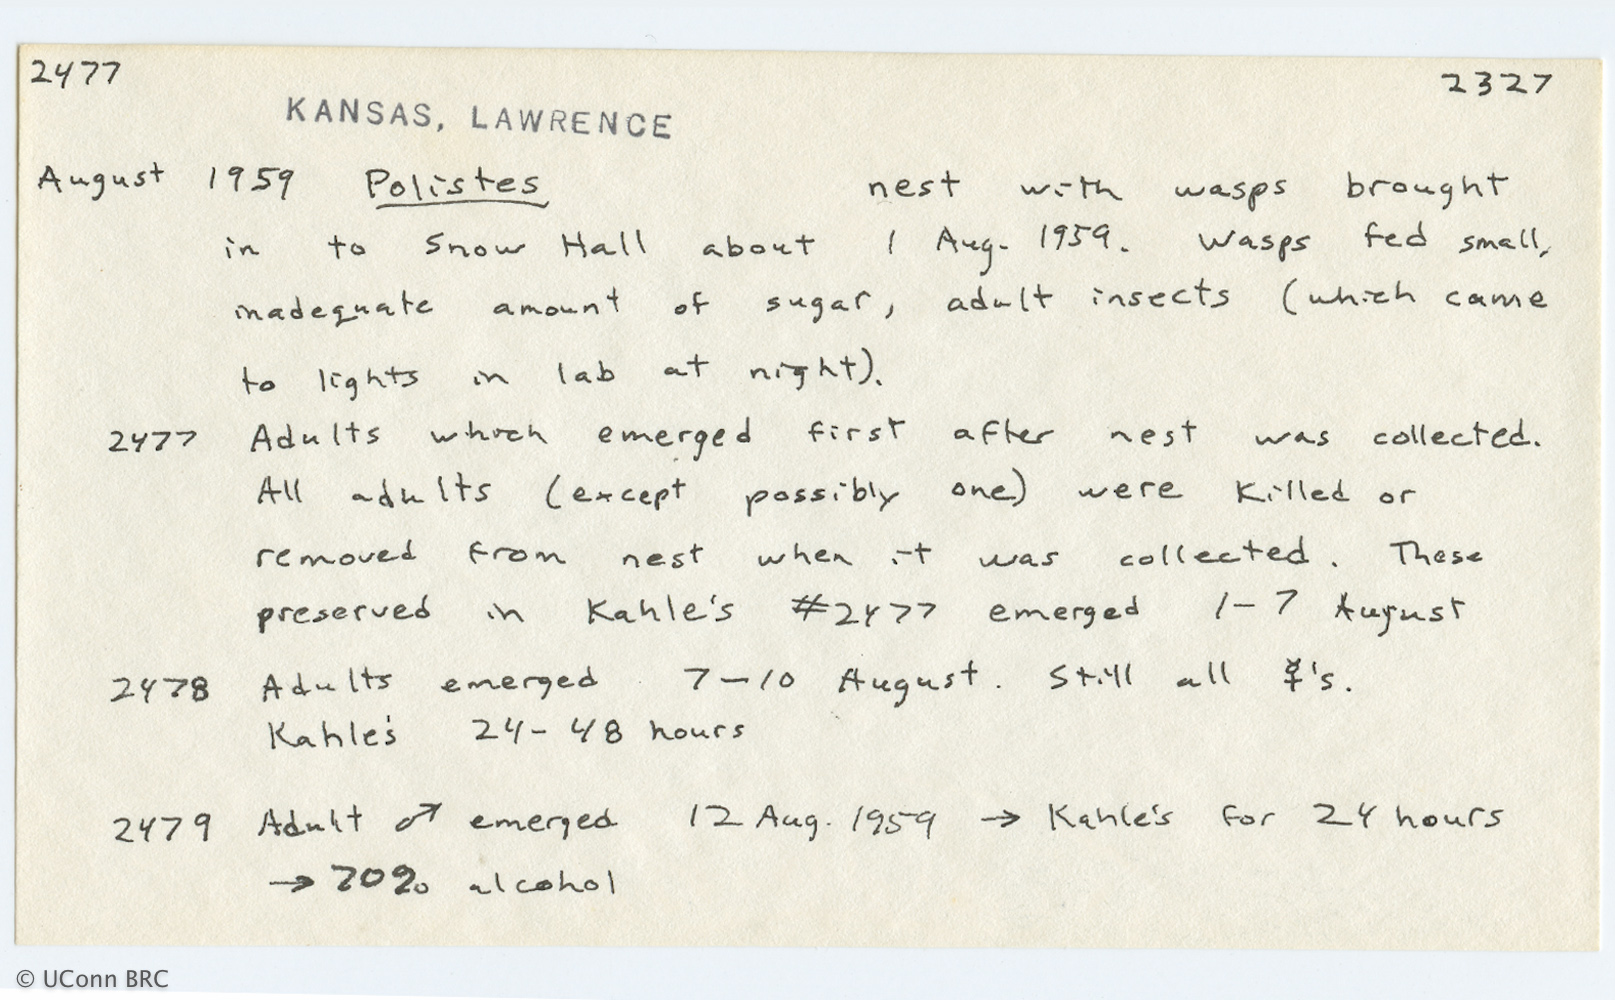 2477 2327
KANSAS, LAWRENCE
August 1959 Polistes nest with wasps brought
in to Snow Hall about 1 Aug. 1959. Wasps fed small,
inadequate amount of sugar, adult insects (which came
to lights in lab at night).
2477 Adults which emerged first after nest was collected.
All adults (except possibly one) were killed or
removed from nest when it was collected. These
preserved in Kahle's #2477 emerged 1-7 August
2478 Adults emerged 7-10 August. Still all ☿'s.
Kahle's 24-48 hours
2479 Adult ♂ emerged 12 Aug. 1959 → Kahle's for 24 hours
→ 70% alcohol
© UConn BRC